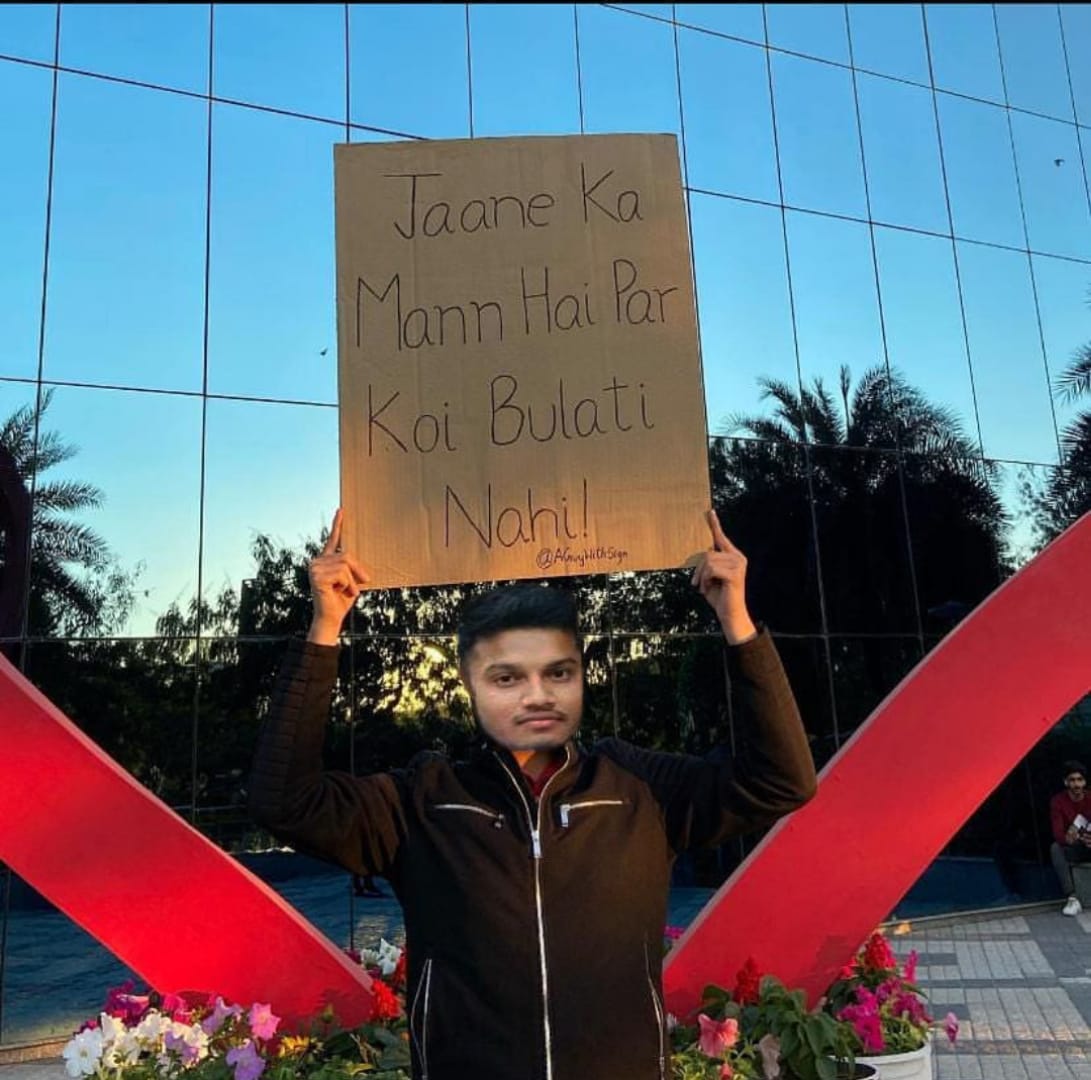 Jaane Ka
Mann Hai Par
Koi Bulati
Nahi!
@AGuyWithSign